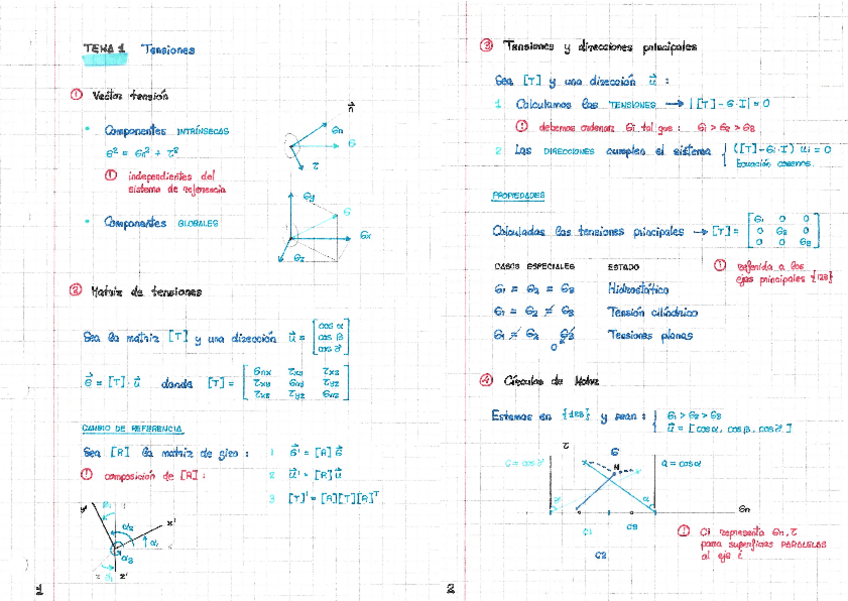 TEMA 1 Tensiones
① Vector tensión
n⃗
• Componentes INTRÍNSECAS
σ² = σn² + τ²
σn
σ
τ
① independientes del
sistema de referencia
• Componentes GLOBALES
σy
σ
σx
σz
② Matriz de tensiones
Sea la matriz [T] y una dirección u⃗ = [cos α
cos β
cos γ]
σ⃗ = [T]·u⃗ donde [T] = [σnx τxy τxz
τxy σny τyz
τxz τyz σnz]
CAMBIO DE REFERENCIA
Sea [R] la matriz de giro : 1 σ⃗' = [R] σ⃗
① composición de [R] : 2 u⃗' = [R] u⃗
3 [T]' = [R][T][R]ᵀ
y'
x'
z'
1
③ Tensiones y direcciones principales
Sea [T] y una dirección u⃗ :
1 Calculamos las TENSIONES → |[T] - σ·I| = 0
① debemos ordenar σi tal que : σ1 > σ2 > σ3
2 Las DIRECCIONES cumplen el sistema { ([T] - σi·I) ui = 0
Ecuación
PROPIEDADES
Calculadas las tensiones principales → [T] = [σ1 0 0
0 σ2 0
0 0 σ3]
CASOS ESPECIALES ESTADO
① referida a los
ejes principales {123}
σ1 = σ2 = σ3 Hidrostático
σ1 = σ2 ≠ σ3 Tensión cilíndrica
σ1 ≠ σ2 σ3 Tensiones planas
0
④ Círculos de Mohr
Estamos en {123} y sean : { σ1 > σ2 > σ3
u⃗ = [cos α, cos β, cos γ]
τ
G
C = cos γ
M
A = cos α
α
σn
C1
C3
C2
① Ci representa σn, τ
para superficies PARALELAS
al eje i
2